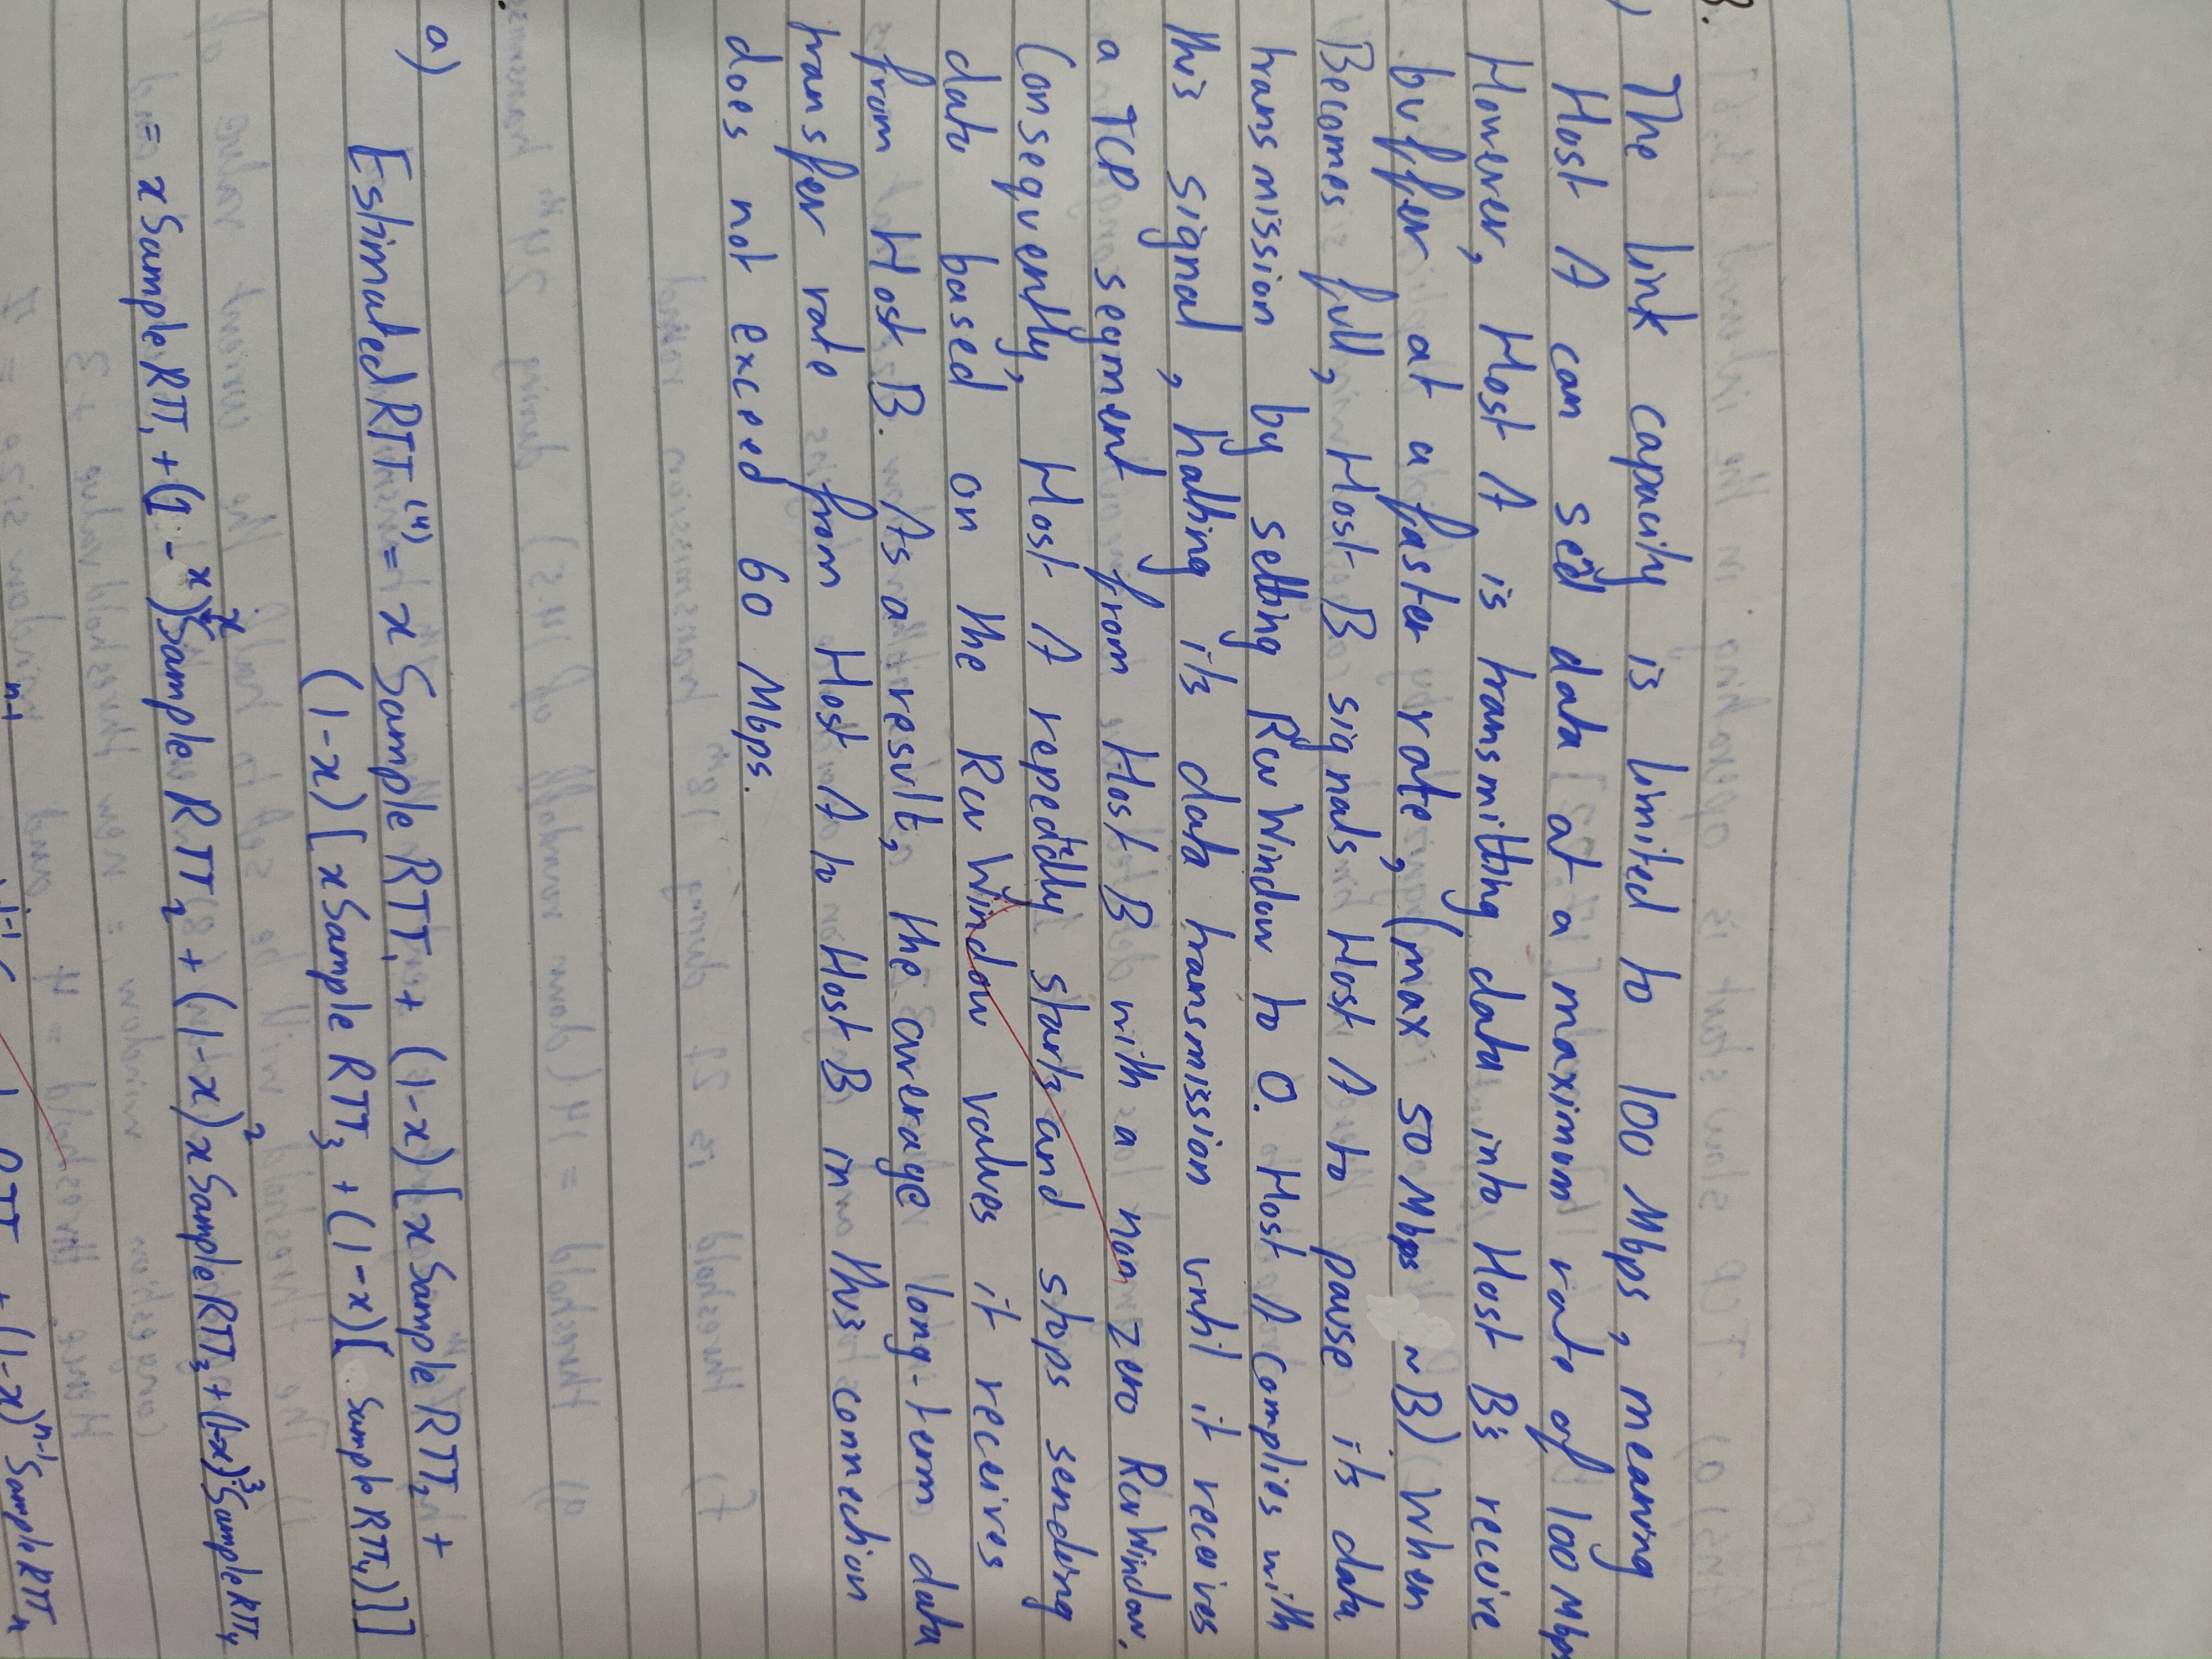 3.
) The link capacity is limited to 100 Mbps, meaning
Host A can sed data at a maximum rate of 100 Mbps
However, Host A is transmitting data into Host B's receive
buffer at a faster rate, (max 50 Mbps ~B). When
Becomes full, Host B signals Host A to pause its data
transmission by setting Rcv Window to 0. Host A complies with
this signal, halting its data transmission until it receives
a TCP segment from Host B with a non zero Rcv Window.
Consequently, Host A repeatedly starts and stops sending
data based on the Rcv Window values it receives
from Host B. As a result, the average long-term data
transfer rate from Host A to Host B in this connection
does not exceed 60 Mbps.
a)
Estimated RTT⁽⁴⁾ = x Sample RTT₁ + (1-x) [x Sample RTT₂ +
(1-x) [x Sample RTT₃ + (1-x) [ Sample RTT₄)]]]
= x Sample RTT₁ + (1-x)x Sample RTT₂ + (1-x)² x Sample RTT₃ + (1-x)³ Sample RTT₄
n-1 RTT + (1-x)ⁿ⁻¹ Sample RTTₙ